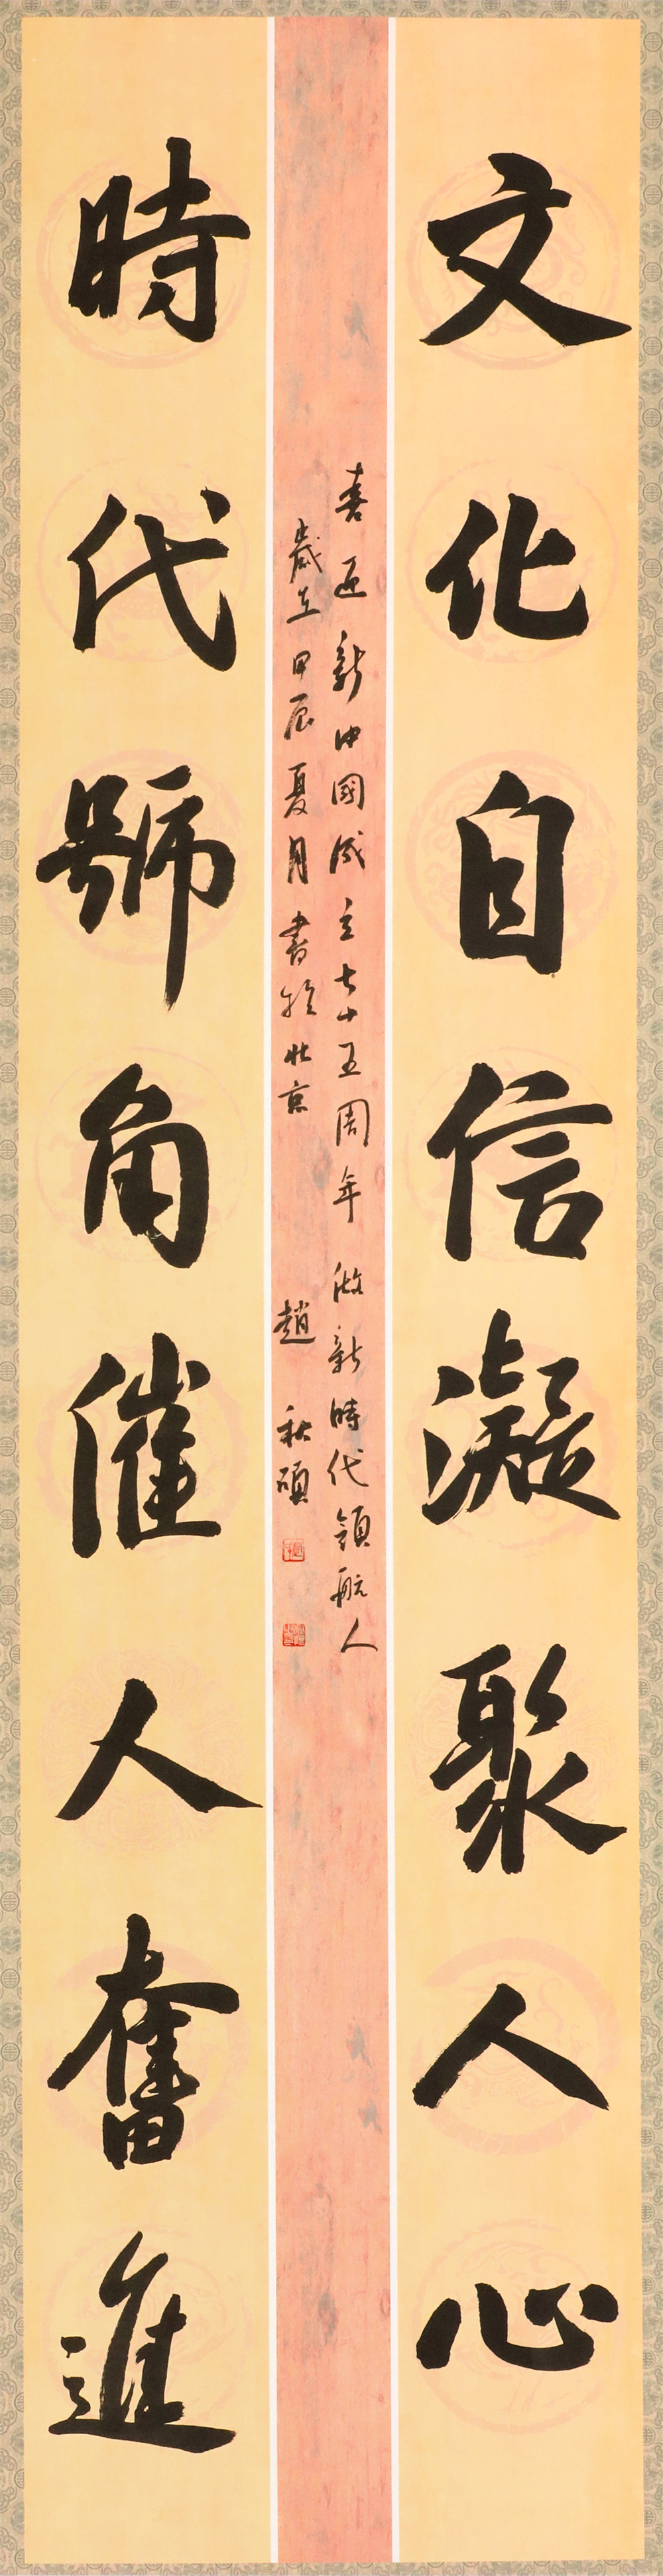 文化自信凝聚人心
喜迎新中國成立七十五周年 做新時代領航人
歲在甲辰夏月書於北京 趙秋碩
時代號角催人奮進